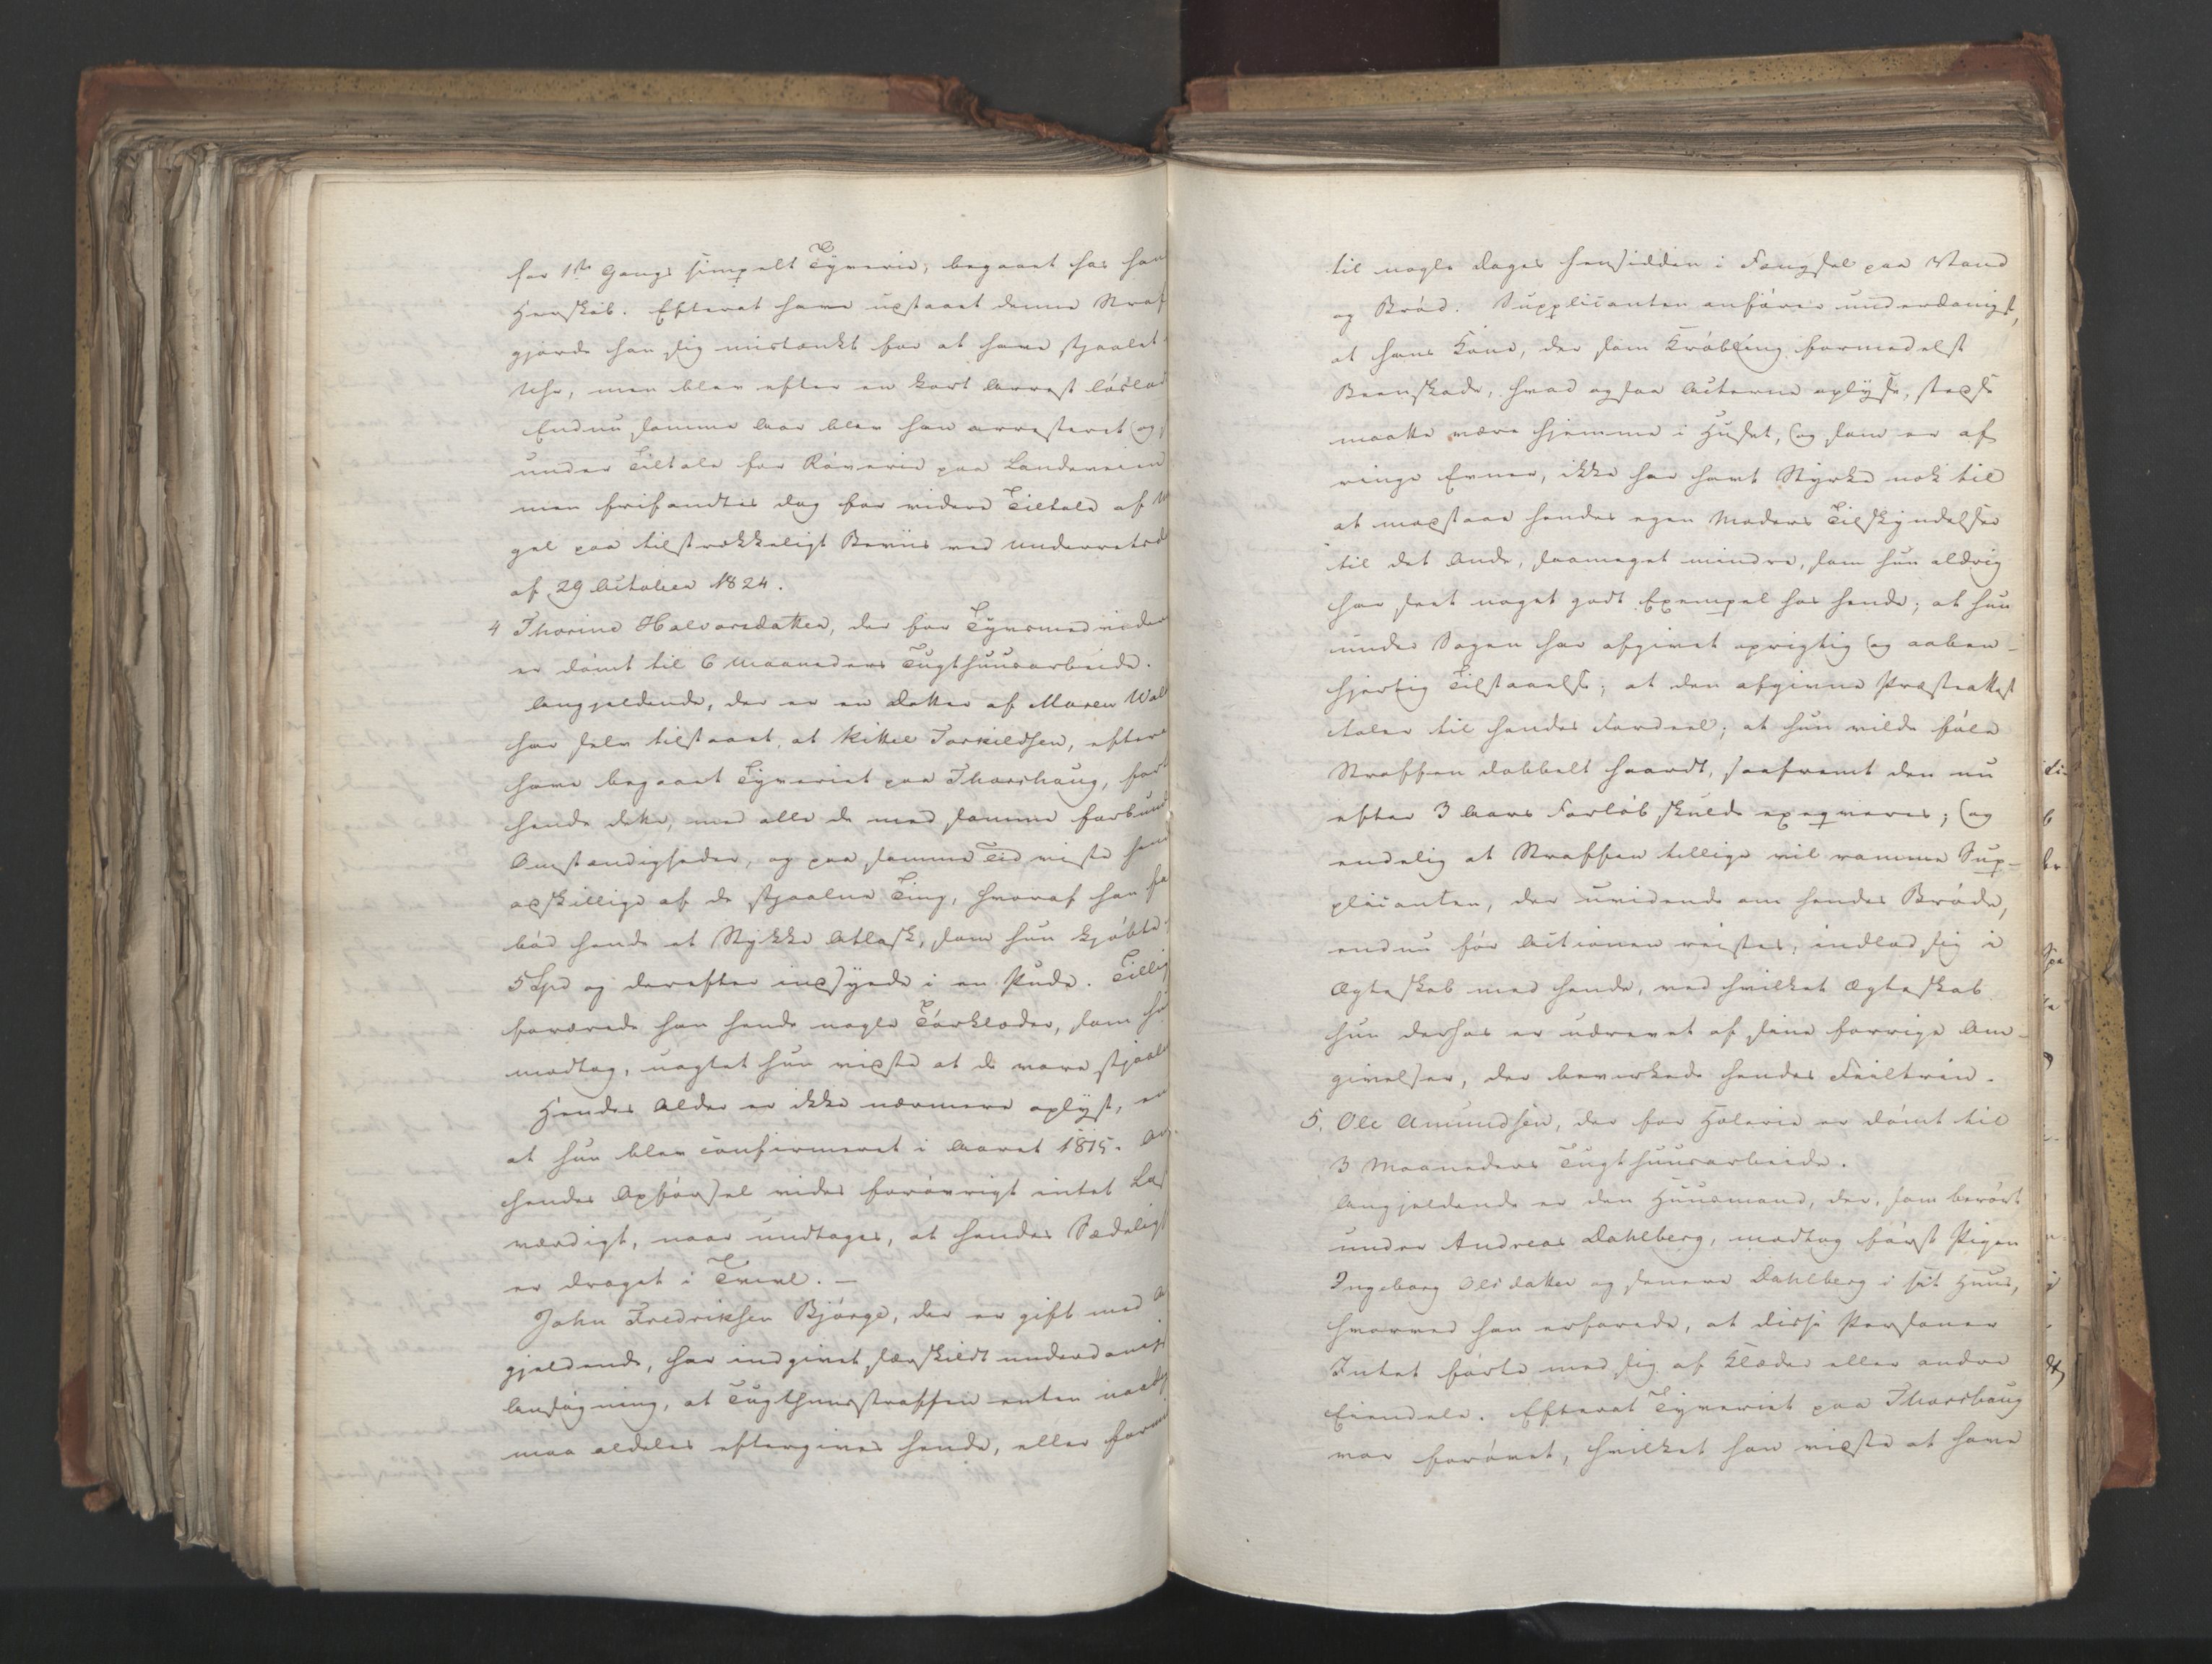 for 1ste Gangs simpelt Tyverie, begaaet hos han
Herskab. Efterat have udstaaet denne Straf
gjorde han sig mistænkt for at have stjaalet
Uhr, men blev efter en kort Arrest løslad
Endnu samme Aar blev han arresteret og
under Tiltale for Røverie paa Landeveien
men frifandtes dog for videre Tiltale af M
gel paa tilstrækkeligt Beviis ved Underretsd
af 29 October 1824.
4 Thorine Halvorsdatter, der for Tyvsmedvider
er dømt til 6 Maaneders Tugthuusarbeide.
Angjeldende, der er en Datter af Maren Wal
har selv tilstaaet, at Kittel Torkildsen, efter
have begaaet Tyveriet paa Thorshaug, fort
hende dette, med alle de med samme forbund
Omstændigheder, og paa samme Tid viste hend
adskillige af de stjaalne Ting, hvoraf han fa
bød hende et Stykke Atlask, som hun kjøbte
5 Spd og derefter indsyede i en Pude. Tillig
forærede han hende nogle Tørklæder, som hu
modtog, uagtet hun vidste at de vare stjaaln
Hendes Alder er ikke nærmere oplyst, en
at hun blev confirmeret i Aaret 1815. Om
hendes Opførsel vides forøvrigt intet Las
værdigt, naar undtages, at hendes Sædeligh
er draget i Tvivl. —
John Fredriksen Bjørge, der er gift med A
gjeldende, har indgivet særskildt underdanigst
Ansøgning, at Tugthuusstraffen enten naad
maa aldeles eftergives hende, eller form
til nogle Dages Hensidden i Fængsel paa Vand
og Brød. Supplicanten anfører underdanigst,
at hans Kone, der som Krøbling formedelst
Beenskade, hvad ogsaa Acterne oplyse, stedse
maatte være hjemme i Huset, og som er af
ringe Evner, ikke har havt Styrke nok til
at modstaae hendes egen Moders Tilskyndelser
til det Onde, saameget mindre, som hun aldrig
har seet noget godt Exempel hos hende; at hun
under Sagen har afgivet oprigtig og aaben-
hjertig Tilstaaelse; at den afgivne Præsteattest
taler til hendes Fordeel; at hun vilde føle
Straffen dobbelt haardt, saafremt den nu
efter 3 Aars Forløb skulde exeqveres; og
endelig at Straffen tillige vil ramme Sup-
plicanten, der uvidende om hendes Brøde,
endnu før Actionen reistes, indlod sig i
Ægteskab med hende, ved hvilket Ægteskab
hun derhos er udrevet af sine forrige Om-
givelser, der bevirkede hendes Feiltrin.
5. Ole Amundsen, der for Hæleri er dømt til
3 Maaneders Tugthuusarbeide.
Angjeldende er den Huusmand, der, som berørt
under Andreas Dahlberg, modtog først Pigen
Ingeborg Olsdatter og senere Dahlberg i sit Huus,
hvorved han erfarede, at disse Personer
Intet førte med sig af Klæder eller andre
Eiendele. Efterat Tyveriet paa Thorshaug
var forøvet, hvilket han vidste at have